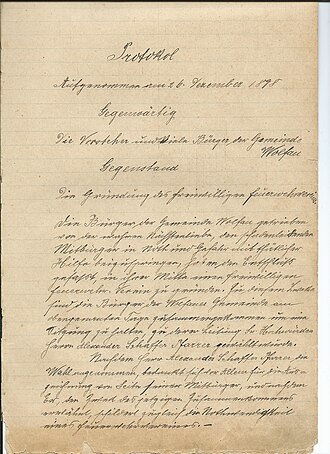 Protokol
Aufgenommen am 26. Dezember 1898
Gegenwärtig
Die Vorsteher und Viele Bürger der Gemeinde
Wolfau
Gegenstand
Die Gründung des freiwilligen Feuerwehrvereins
Die Bürger der Gemeinde Wolfau getrieben
von der wahren den
Mitbürger in Noth und Gefahr mit
Hilfe beizuspringen, haben den Entschluß
gefaßt in ihrer Mitte einen freiwilligen
Feuerwehr Verein zu gründen. Zu diesem Zwecke
sind die Bürger der Gemeinde am
Tage zusammengekommen um eine
Sitzung zu halten, zu deren Leitung sie Hochwürden
Herrn Alexander Schaffer Pfarrer
Nachdem Herr Alexander Schaffer Pfarrer die
Wahl angenommen, bedankt sich für die
von Seite seiner Mitbürger, und nachdem
Er, den Zweck des jetzigen Zusammenkommens
erklärt, schildert zugleich die Nothwendigkeit
eines Feuerwehrvereines. –